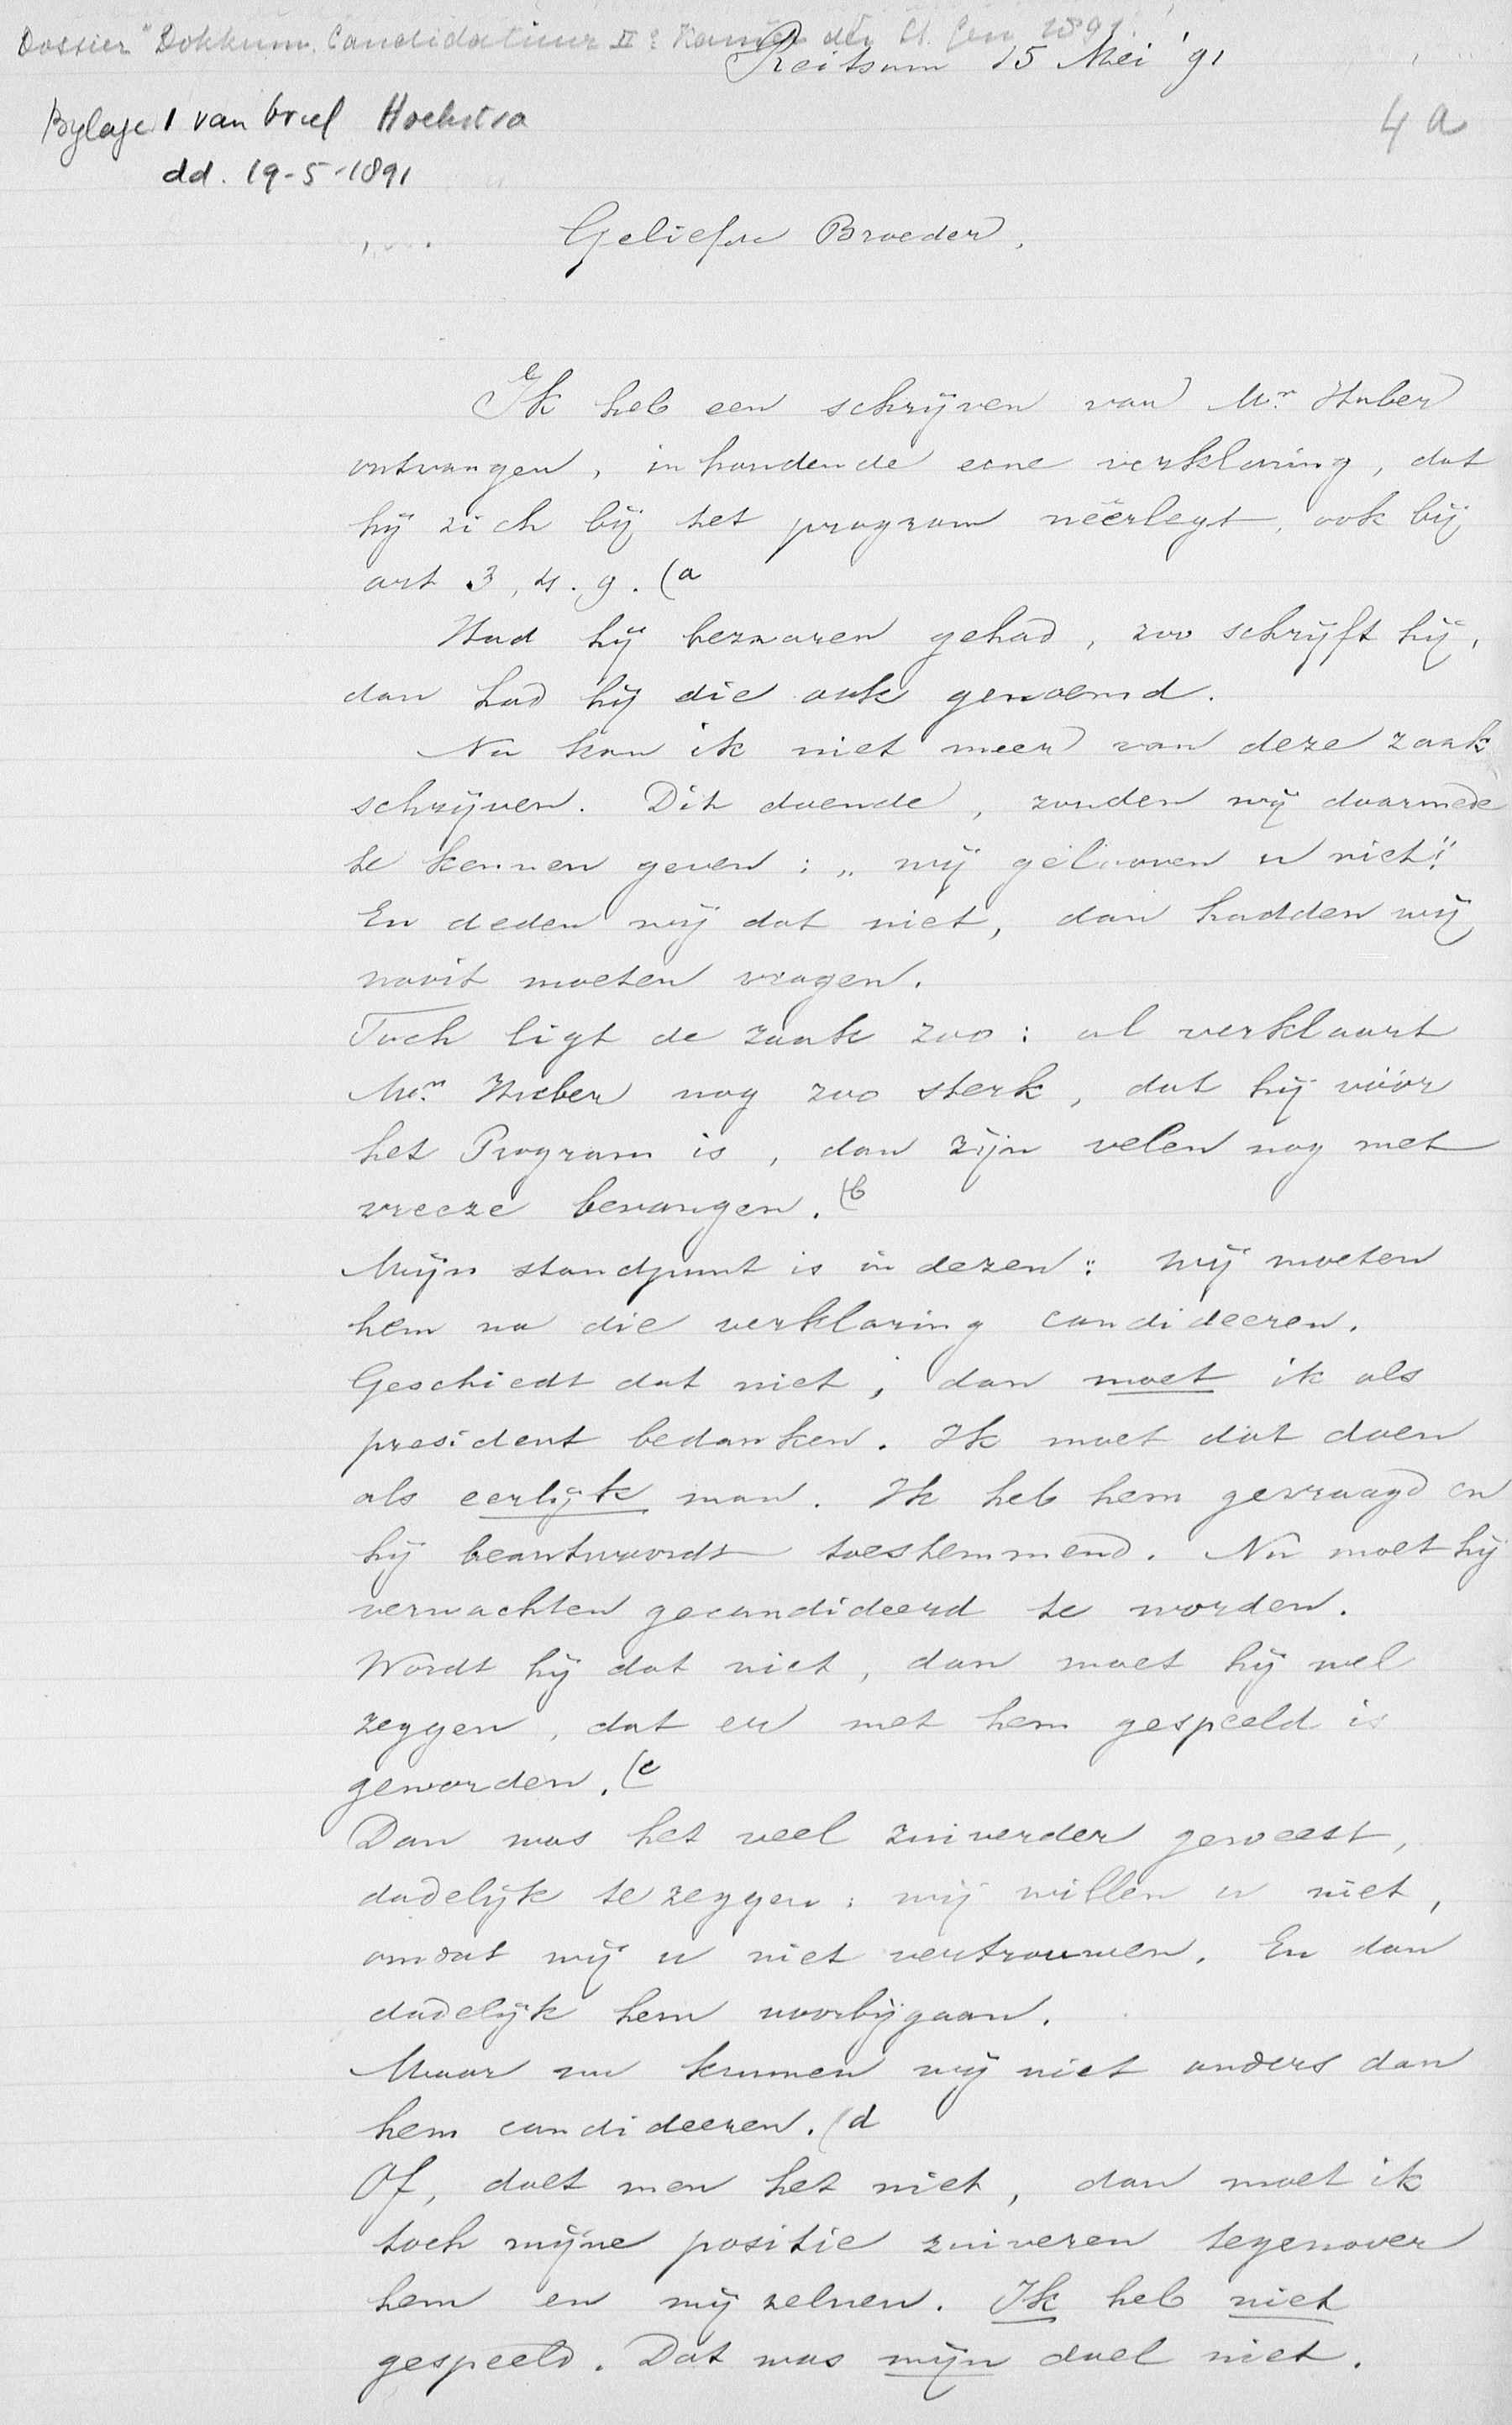 Dossier "Dokkum. Candidatuur IIe Kamer der St. Gen 1891.
Reitsum 15 Mei '91
Bylage 1 van brief Hoekstra
4a
dd. 19-5-1891
Geliefde Broeder,
Ik heb een schrijven van Mr. Huber
ontvangen, inhoudende eene verklaring, dat
hij zich bij het program neerlegt, ook bij
art 3, 4. 9. (a
Had hij bezwaren gehad, zoo schrijft hij,
dan had hij die ook genoemd.
Nu kan ik niet meer van deze zaak
schrijven. Dit doende, zouden wij daarmede
te kennen geven: „wij gelooven u niet!"
En deden wij dat niet, dan hadden wij
nooit moeten vragen.
Toch ligt de zaak zoo: al verklaart
Mr. Huber nog zoo sterk, dat hij vóór
het Program is, dan zijn velen nog met
vreeze bevangen. (b
Mijn standpunt is in dezen: wij moeten
hem na die verklaring candideeren.
Geschiedt dat niet, dan moet ik als
president bedanken. Ik moet dat doen
als eerlijk man. Ik heb hem gevraagd en
hij beantwoordt toestemmend. Nu moet hij
verwachten gecandideerd te worden.
Wordt hij dat niet, dan moet hij wel
zeggen, dat er met hem gespeeld is
geworden. (c
Dan was het veel zuiverder geweest,
dadelijk te zeggen: wij willen u niet,
omdat wij u niet vertrouwen. En dan
dadelijk hem voorbijgaan.
Maar nu kunnen wij niet anders dan
hem candideeren. (d
Of, doet men het niet, dan moet ik
toch mijne positie zuiveren tegenover
hem en mij zelven. Ik heb niet
gespeeld. Dat was mijn doel niet.